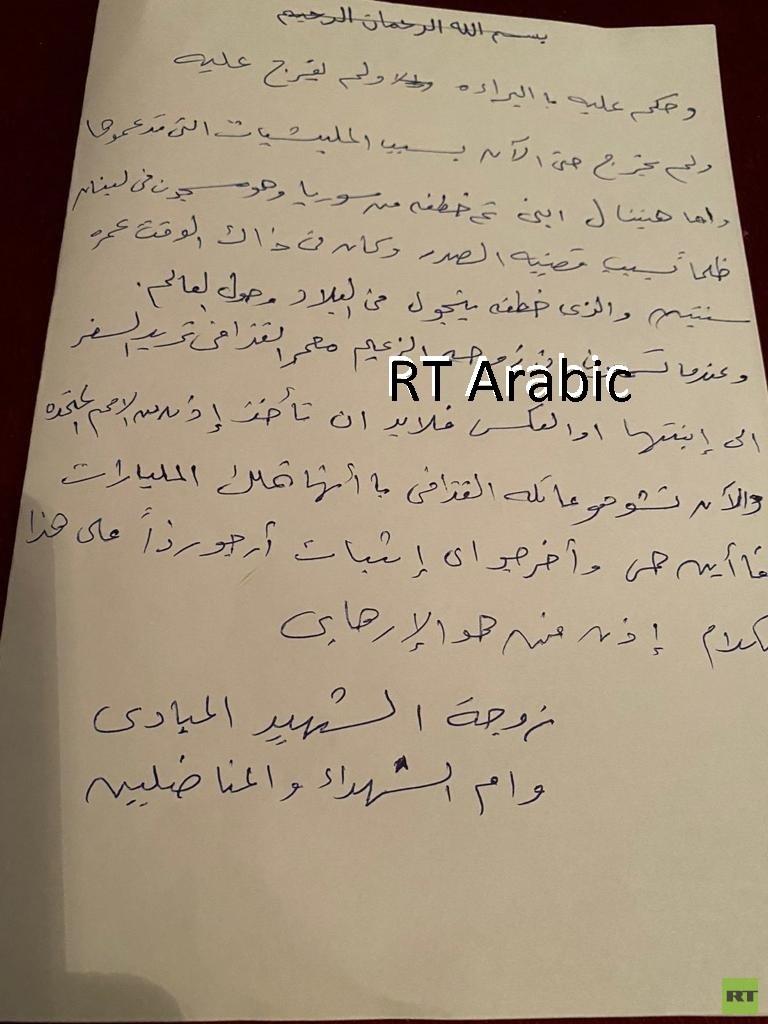 بسم الله الرحمان الرحيم
وحكم عليه باالبراءه ولم يفرج عليه
ولم يخرج حتى الآن بسبب المليشيات التى تدعموها
واما هنيبال ابنى تم خطفه من سوريا وهو مسجون فى لبنان
ظلماً بسبب قضيه الصدر وكان فى ذاك الوقت عمره
سنتين والذى خطفه يتجول فى البلاد وحول العالم.
وعندما الزعيم معمر القذافى تريد السفر
الى إبنتها او العكس فلابد ان تأخذ إذن من الامم المتحده
والآن تشوهو عائله القذافى باأنها تملك المليارات
فاأين هى وأخرجوا اى إثبات أرجو رداً على هذا
الكلام إذن من هو الإرهابى
زوجة الشهيد المبادى
وام الشهداء والمناضلين
RT Arabic
RT